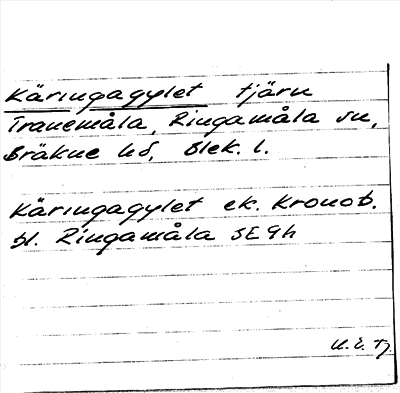 Käringagylet tjärn
Tranemåla, Ringamåla sn,
Bräkne hd, Blek. l.
Käringagylet ek. Kronob.
bl. Ringamåla 3E9h